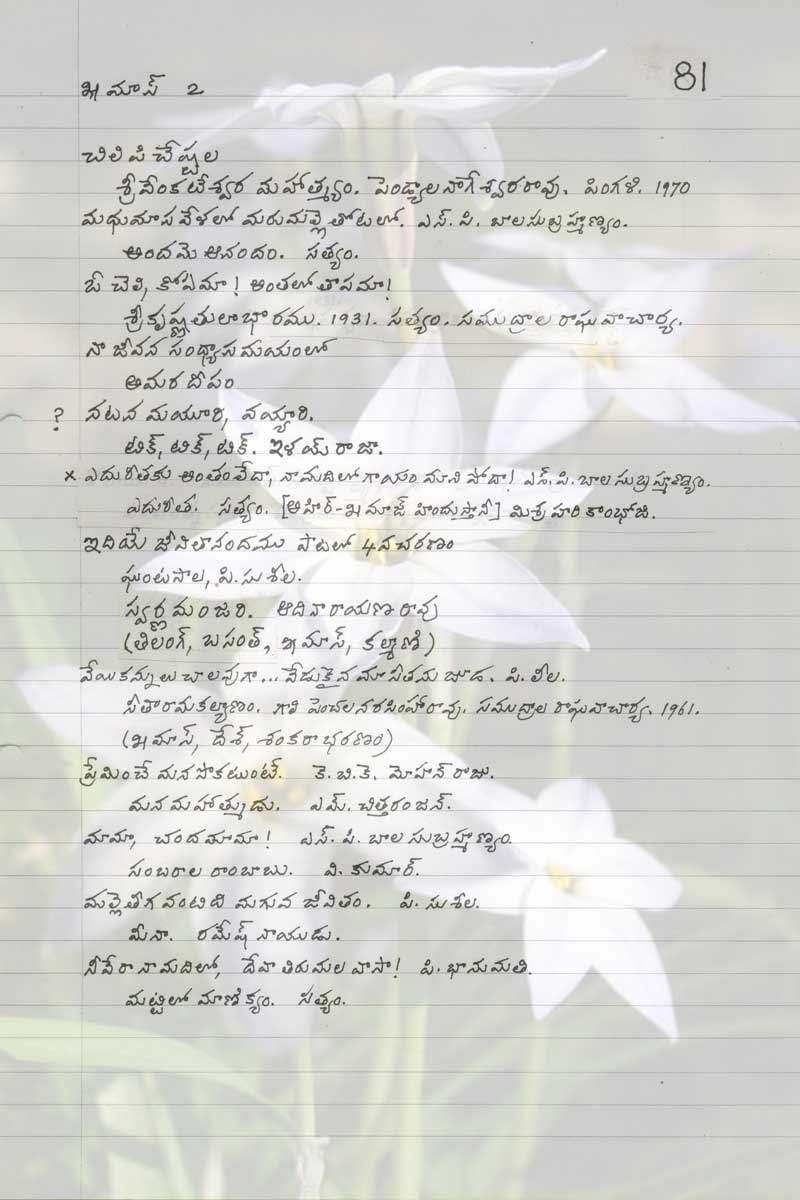 ఖమాస్ 2
81
చిలిపి చేష్టల
శ్రీ వేంకటేశ్వర మహాత్మ్యం. పెండ్యాల నాగేశ్వరరావు. పింగళి. 1970
మధుమాస వేళలో మరుమల్లె తోటలో. ఎస్. పి. బాలసుబ్రహ్మణ్యం.
అందమె ఆనందం. సత్యం.
ఓ చెలి, కోపమా! అంతలో తాపమా!
శ్రీకృష్ణ తులాభారము. 1931. సత్యం. సముద్రాల రాఘవాచార్య.
నా జీవన సంధ్యాసమయంలో
అమర దీపం
? నటన మయూరి, వయ్యారి.
టిక్, టిక్, టిక్. ఇళయ్ రాజా.
x ఎదురీతకు అంతంలేదా, నామదిలో గాయం మాని పోదా! ఎస్. పి. బాల సుబ్రహ్మణ్యం.
ఎదురీత. సత్యం. [అహిర్-ఖమాజ్ హిందుస్తానీ] మిశ్ర హరికాంభోజి.
ఇదియే జీవితానందము పాటలో 4వ చరణం
ఘంటసాల, పి. సుశీల.
స్వర్ణ మంజరి. ఆదినారాయణ రావు
(తిలంగ్, బసంత్, ఖమాస్, కల్యాణి)
వేయి కన్నులు చాలవుగా... వేడుకైన మా సీతను జూడ. పి. లీల.
సీతారామకల్యాణం. గాలి పెంచలనరసింహారావు. సముద్రాల రాఘవాచార్య. 1961.
(ఖమాస్, దేశ్, శంకరాభరణం)
ప్రేమించే మనసొకటుంటే. కె. బి. కె. మోహన్ రాజు.
మన మహాత్ముడు. ఎమ్. చిత్తరంజన్.
మామా, చందమామా! ఎస్. పి. బాల సుబ్రహ్మణ్యం.
సంబరాల రాంబాబు. వి. కుమార్.
మల్లెతీగ వంటిది మగువ జీవితం. పి. సుశీల.
మీనా. రమేష్ నాయుడు.
నీవేరా నా మదిలో, దేవా తిరుమల వాసా! పి. భానుమతి.
మట్టిలో మాణిక్యం. సత్యం.